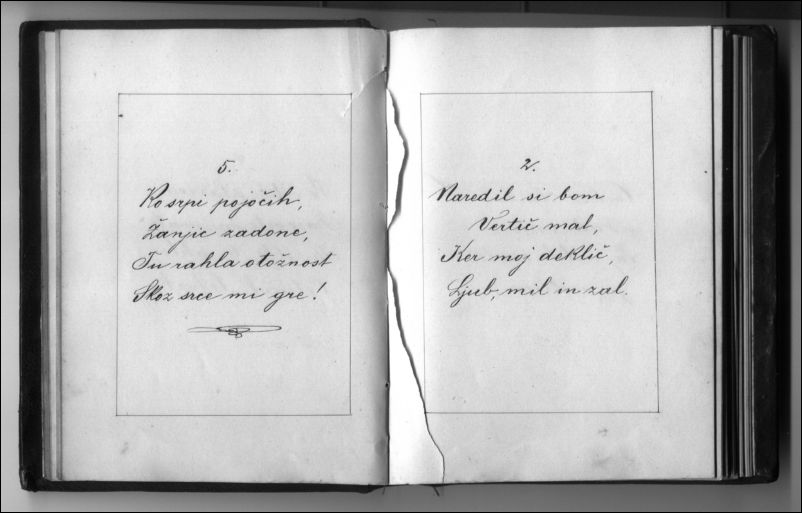 5.
Ko srpi pojočih,
Žanjic zadone,
Tu rahla otožnost
Skoz srce mi gre!
2.
Naredil si bom
Vertič mal,
Ker moj deklič,
Ljub, mil in zal.